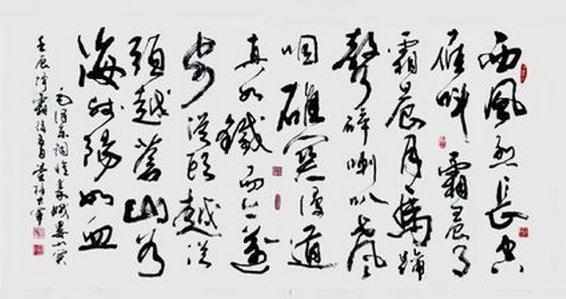 西風烈長空
雁叫霜晨月
霜晨月馬蹄
聲碎喇叭聲
咽雄關漫道
真如鐵而今邁
步從頭越從
頭越蒼山如
海殘陽如血
毛澤東詞憶秦娥婁山關
壬辰